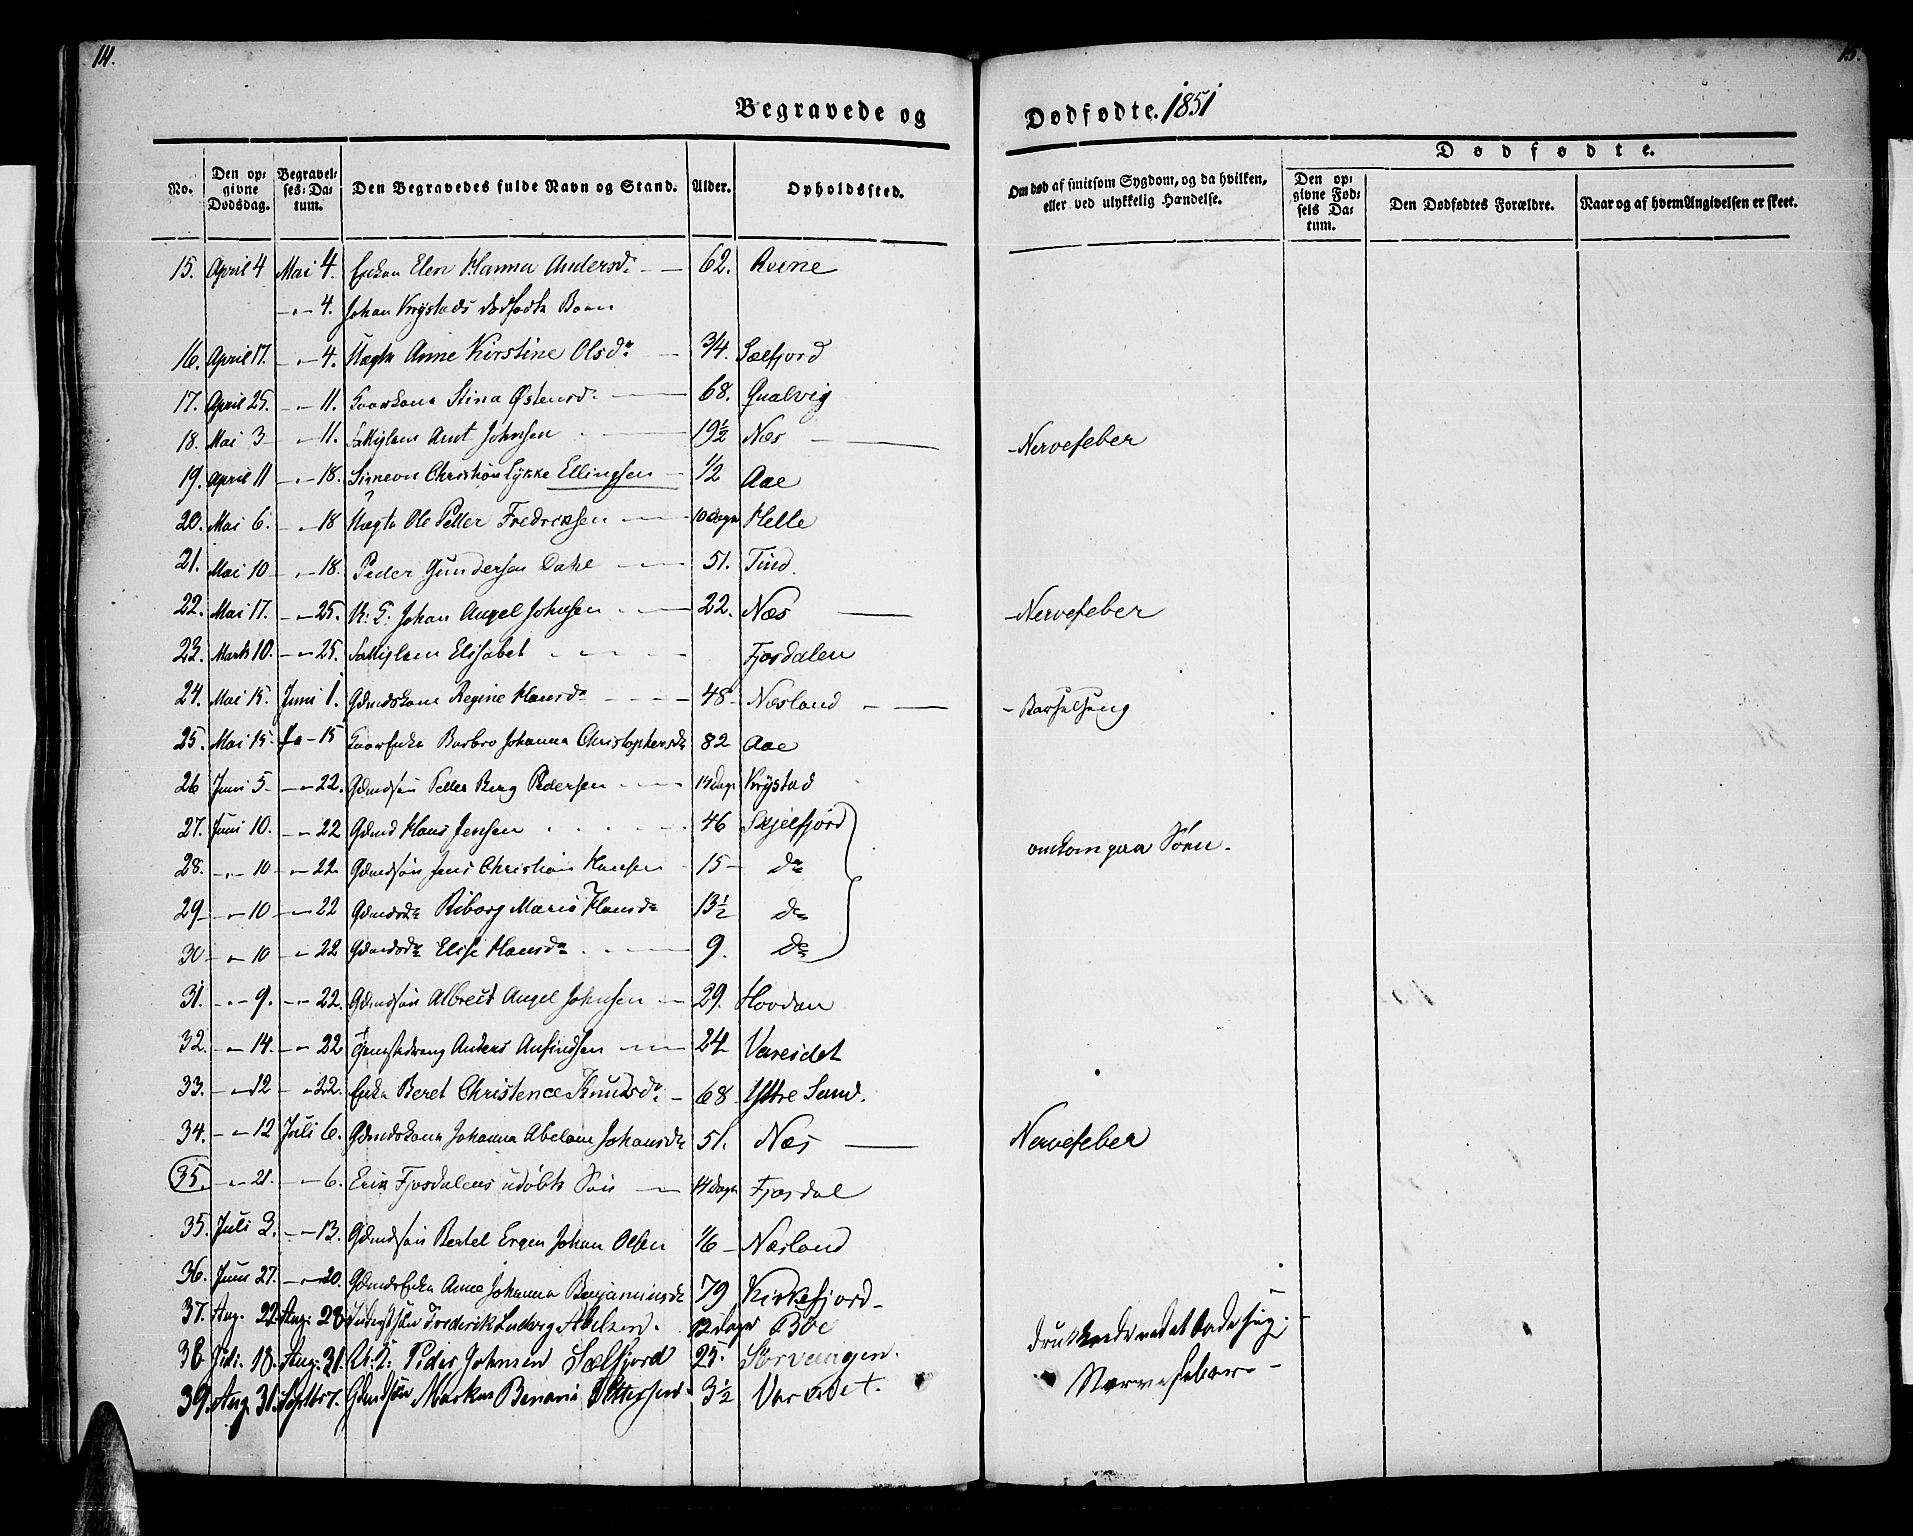 14.
15.
Begravede og Dødfødte. 1851
Dødfødte.
No.
Den opgivne Dødsdag.
Begravelses-Datum.
Den Begravedes fulde Navn og Stand.
Alder.
Opholdssted.
Om død af smitsom Sygdom, og da hvilken, eller ved ulykkelig Hændelse.
Den opgivne Fødsels Datum.
Den Dødfødtes Forældre.
Naar og af hvem Angivelsen er skeet.
15. April 4 Mai 4. Enken Elen Hanna Andersdr 62. Reine
-"- 4. Johan Krystads dødfødte Barn
16. April 17. -"- 4. Uægte Anne Kirstine Olsdr 3/4 Sælfjord
17. April 25. -"- 11. Stina Østensd. 68. Qualvig
18. Mai 3 -"- 11. Arnt Johnsen 19 1/2 Næs Nervefeber
19. April 11 -"- 18. Simeon Christian Lykke Ellingsen 1/2 Aae
20. Mai 6. -"- 18 Uægte Ole Petter Fredriksen 10 Dage Helle
21. Mai 10 -"- 18. Peder Gundersen Dahl 51. Tind
22. Mai 17. -"- 25. Johan Angel Johnsen 22. Næs Nervefeber
23. Marts 10. -"- 25. Elisabet Fjordalen
24. Mai 15. Juni 1. Gdmdskone Regine Hansdr 48 Næsland Barselseng
25. Mai 15. 15 Barbro Johanna Christophersdr 82 Aae
26 Juni 5 -"- 22. Gdmdsøn Petter Berg Pedersen 14 Dage Krystad
27. Juni 10. -"- 22 Gdmd Hans Jensen 46 Skjelfjord
28. -"- 10 -"- 22 Gdmdsøn Jens Christian Hansen 15 do omkom paa Søen.
29 -"- 10 -"- 22 Gdmdsdr Riborg Marie Hansdr 13 1/2 do
30 -"- 10 -"- 22 Gdmdsdr Elise Hansdr 9. do
31. -"- 9. -"- 22. Gdmdsøn Albreit Angel Johnsen 29. Hovdan
32. -"- 14. -"- 22 Anders Anfindsen 24 Vareidet
33. -"- 12 -"- 22. Enke Beret Christence Knudsdr 68 Yttre Sund.
34. -"- 12 Juli 6. Gdmdskone Johanna Abelone Johansdr 51. Næs Nervefeber
35. -"- 21. -"- 6. Erik Fjordalens udøbte Søn 14 Dage Fjordal
35. Juli 3. -"- 13. Gdmdsøn Bertel Ergen Johan Olsen 1/6 Næsland
36. Juni 27. -"- 20. Gdmdsenke Anne Johanna Benjaminsdr 79 Kirkefjord
37. Aug. 22. Aug: 28 Frederik Ludvig Abelsen. 12 Dage Bøe
38 Juli. 13. Aug. 31. Peder Johnsen Sælfjord 25. Sørvaagen. Nervefeber
39. Aug. 31. Septbr 7. Gdmdsøn Markus Benoni Pettersen 3 1/2 Vareidet.